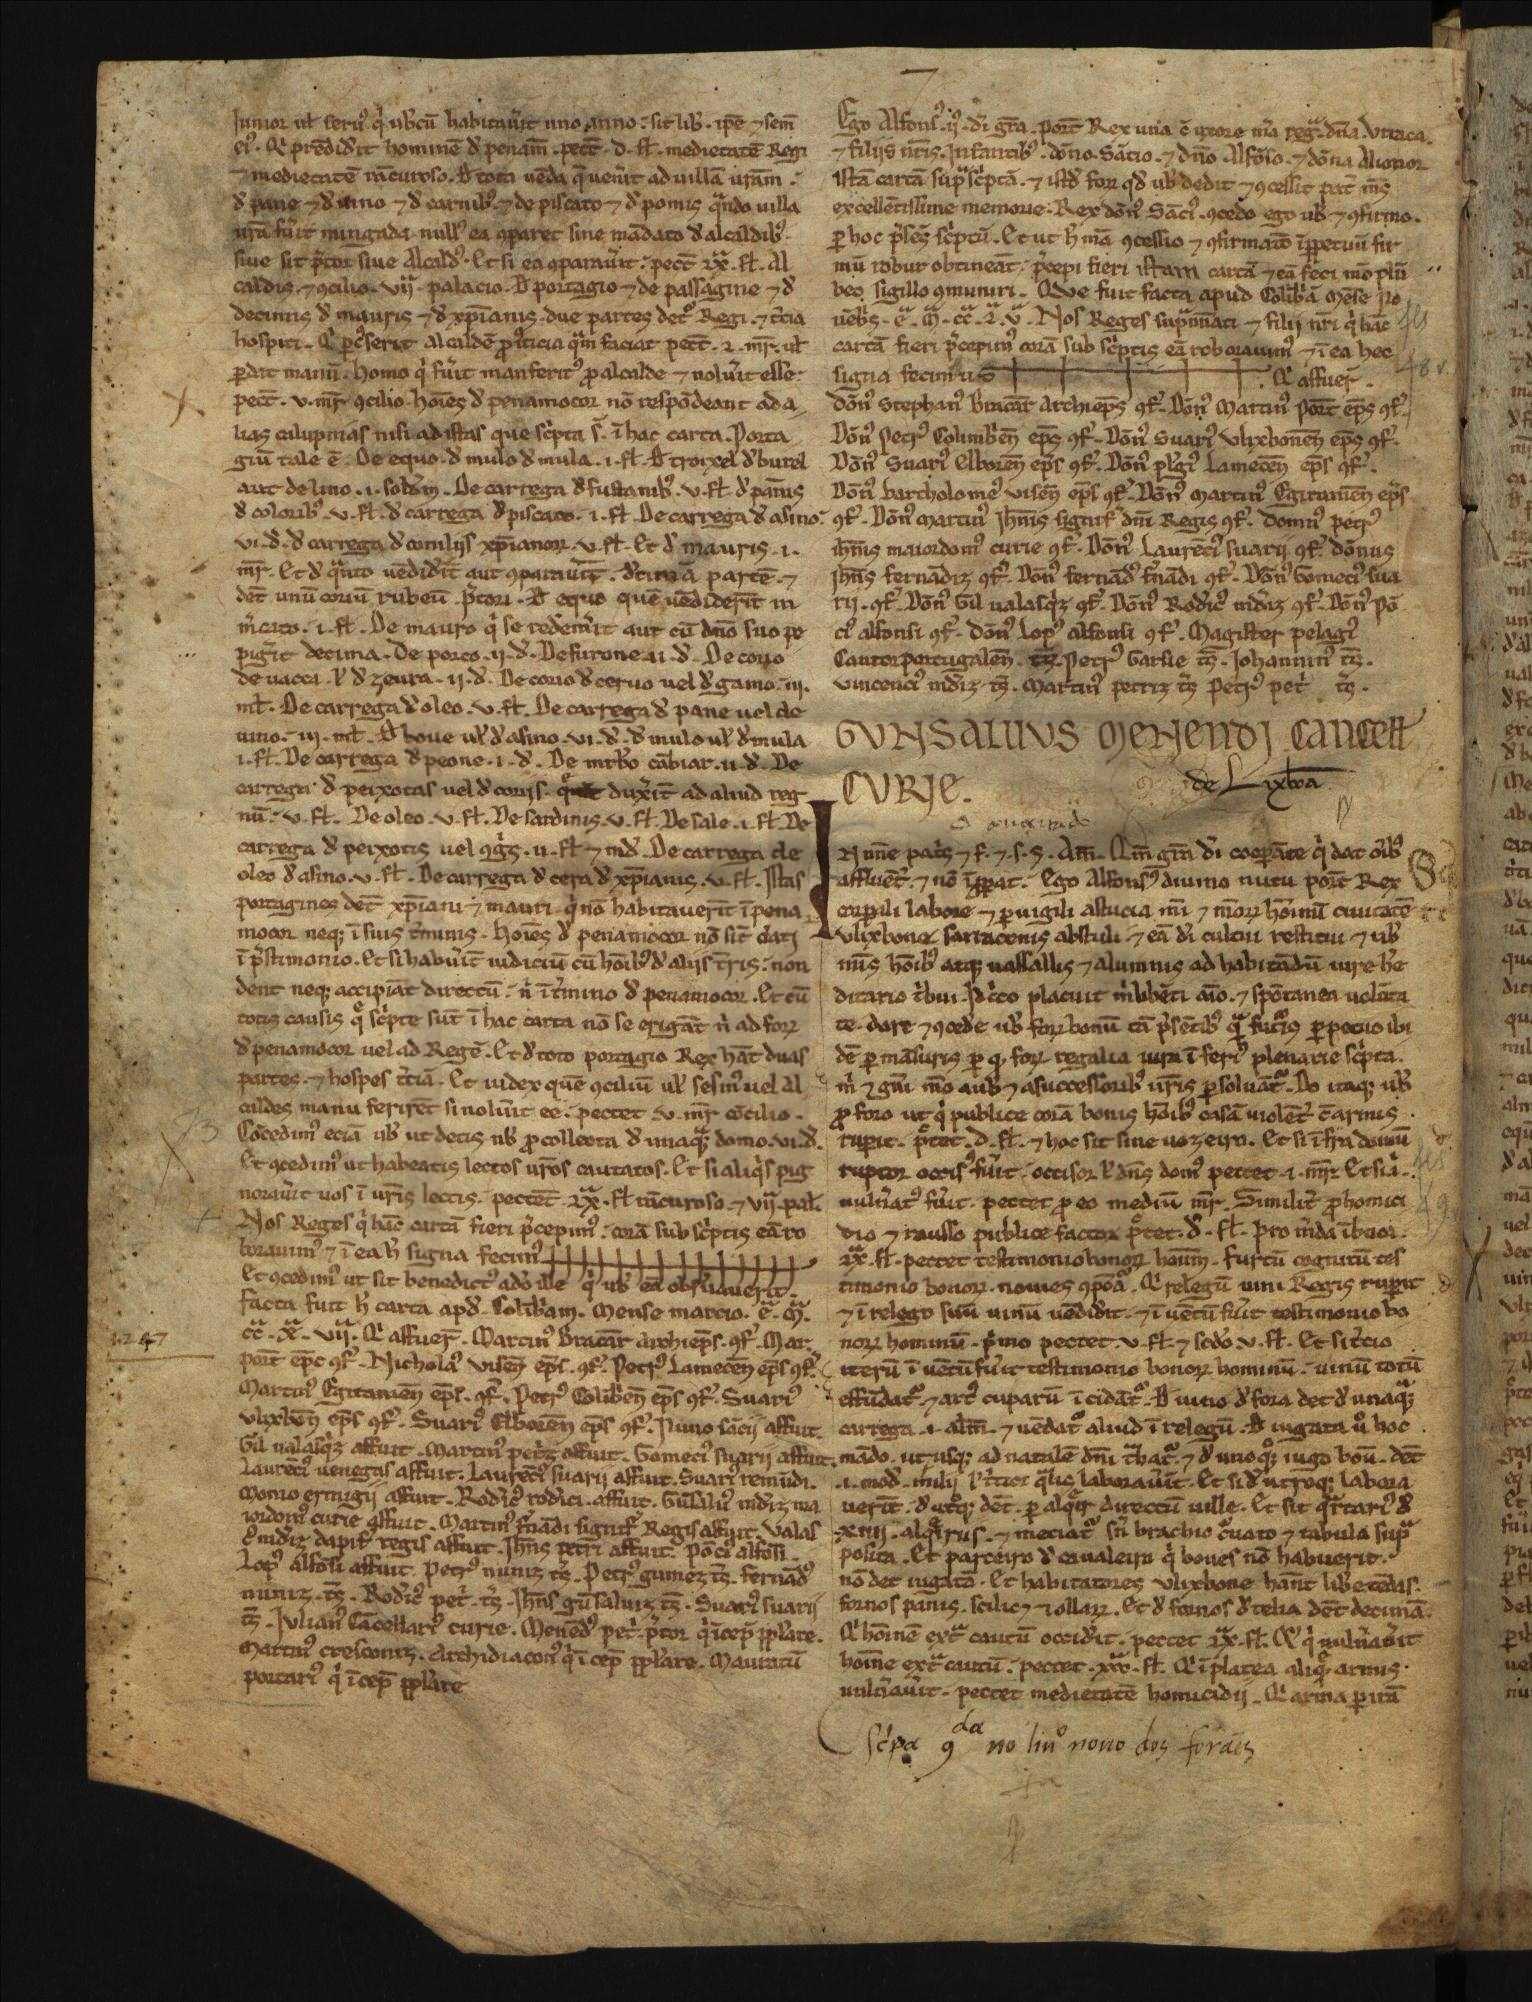 Junior ul seruꝰ q̇ ubicū habitauit uno anno sit lib̄. ip̄e ⁊ sem̄
eiꝰ. Q̇ prēdiderit hominē d̓ penam̄. pect̄. d. sł. medietatē Regi
⁊ medietatē rācuroso. D̓ tota uēda q̄ uenit ad uillā urām.
d̓ pane ⁊ d̓ uino ⁊ d̓ carnibꝰ ⁊ de piscato ⁊ d̓ pomis q̄ndo uilla
urā fuit minguada nullꝰ ea ꝯparet sine mādato d̓ alcaldibꝰ
siue sit p̄tor siue Alcaldꝰ. Et si ea ꝯparauit. pect̄. lx. sł. Al
caldis ⁊ ꝯcilio. vij. palacio. D̓ portagio ⁊ de passagine ⁊ d̓
decimis d̓ mauris ⁊ d̓ xp̄ianis. due partes det Regi. ⁊ t̄cia
hospiti. Q̇ pc̄serit alcaldē ꝓ iticia q̄m faciat pect̄. x. mr̄. ul
ꝑdat manū. Homo q̇ fuit manferitꝰ ꝓ alcalde ⁊ noluit esse
pect̄. v. mr̄ ꝯcilio. hoīes d̓ penamocor nō respōdeant ad a
lias calupnias nisi ad istas que sc̄pta s̄. ī hac carta. Porta
giū tale ē. De equo. d̓ mulo d̓ mula. i. sł. D̓ troxel d̓ burel
aut de lino. i. solīdm. De carrega d̓ fustanibꝰ. v. sł. d̓ pānis
d̓ coloribꝰ. v. sł. d̓ carrega d̓ piscato. i. sł. De carrega d̓ asino.
vi. d̄. d̓ carrega d̓ conilijs xp̄ianoꝝ. v. sł. Et d̓ mauris. i.
mr̄. Et d̓ q̄nto uēdiderit aut ꝯparauit. decimā partē. ⁊
det unū coriū rubeū p̄tori. D̓ equo quē uēdiderīt in
m̄cato. i. sł. De mauro q̇ se redemit aut cū dn̄o suo pe
pigit decima. De porco. ij. d̄. De furone. ii. d̄. De corio
de uacca. ł d̓ zeura. ij. d̄. De corio d̓ ceruo uel d̓ gamo. iij.
mł. De carrega d̓ oleo. v. sł. De carrega d̓ pane uel de
uino. iij. mł. D̓ boue ul d̓ asino. vi. d̄. d̓ mulo ul d̓ mula
i. sł. De carrega d̓ peone. i. d̄. De mrb̄o cābiar. ii. d̄. De
carrega d̓ peixotas uel d̓ conijs. q̄ duxit ad aliud reg
nū. v. sł. De oleo. v. sł. De sardinis. v. sł. De sale. i. sł. De
carrega d̓ peixotis uel ꝯg̓s. ii. sł ⁊ md̄. De carrega de
oleo d̓ asino. v. sł. De carrega d̓ cera d̓ xp̄ianis. v. sł. Istas
portagines dēt xp̄iani ⁊ mauri q̇ nō habitauerīt ī pena
mocor neq; ī suis t̄minis. Hoīes d̓ penamocor nō sīt dati
ī p̄stimonio. Et si habuīt iudiciū cū hoībꝰ d̓ alijs t̄ris. non
dent neq; accipiāt directū. n̄ ī t̄mino d̓ penamocor. Et cū
totis causis q̄ sc̄pte sūt ī hac carta nō se erigāt n̄ ad foꝝ
d̓ penamocor uel ad Regē. Et d̓ toto portagio Rex hāt duas
partes. ⁊ hospes t̄ciā. Et iudex quē ꝯciliū ul sesmꝰ uel Al
caldes manu ferirēt si noluīt eē. pectet v. mr̄ cōcilio.
Cōcedimꝰ eciā ub̄ ut detis nb̄ ꝓ collecta d̓ unaq̄q; domo. vi. d̄.
Et ꝯcedimꝰ ut habeatis lectos urōs cautatos. Et si aliq̄s pig
norauit uos ī urīs lectis. pectēt. lx. sł rācuroso ⁊ vij. pal.
Nos Reges q̇ hāc cartā fieri p̄cepimꝰ. corā sub sc̄ptis eā ro
borauimꝰ ⁊ ī ea h̄ signa fecimꝰ
Et ꝯcedimꝰ ut sit benedictꝰ ad̄o ille q̇ ub̄ eā obs̄uauerit.
Facta fuit h̄ carta apd̄. Colīb̄am. Mense marcio. ē. m̄.
cc̄. x̄. vij. Q̇ affuer̄. Martinꝰ Bracar̄ archiep̄s. ꝯf̄. Mar.
port̄ ep̄c ꝯf̄. Nicholaꝰ Visēn ep̄s. ꝯf̄. Petrꝰ Lamecēn ep̄s ꝯf̄.
Martinꝰ Egitaniēn ep̄s. ꝯf̄. Petrꝰ Colib̄ēn ep̄s ꝯf̄. Suariꝰ
Vlixbōn ep̄s ꝯf̄. Suariꝰ Elborēn ep̄s ꝯf̄. Nuno sācij affuit.
Gil ualasq̄z affuit. Martinꝰ petriz affuit. Gomeciꝰ suarij affuit.
Laurēciꝰ uenegas affuit. Laurēciꝰ suarij affuit. Suariꝰ remūdi.
Monio ermigij affuit. Rod̄icꝰ rod̄ici. affuit. Gūsaluꝰ mēdiz ma
iordomꝰ curie affuit. Martinꝰ fr̄nādi signifꝰ Regis affuit. Valas
cꝰ mēdiz dapifꝰ regis affuit. Ihn̄s petri affuit. Pōciꝰ alfōsi.
Lopꝰ alfōsi affuit. Petrꝰ nuniz tz̄. Petrꝰ gumez tz̄. Fernādꝰ
nuniz. tz̄. Rod̄icꝰ pet̄. tz̄. Ihn̄s gūsaluiz tz̄. Suariꝰ suarij
tz̄. Julianꝰ Cācellariꝰ curie. Menēdꝰ pet̄. p̄tor q̇ īcep̄ pp̄lare.
Martinꝰ cresconiz. Archidiaconꝰ q̇ ī cep̄ pp̄lare. Mauratū
portariꝰ q̇ ī cep̄ pp̄lare
1247
Ego Alfonsꝰ. ijꝰ. di gr̄a. port̄ Rex una c̄ uxore m̄a reḡ. dn̄a. Vrraca.
⁊ filijs nr̄is. Infantibꝰ. dōno. Sācio. ⁊ dn̄o. Alfōso. ⁊ dōna Alionor
istā cartā sup̄ sc̄ptā. ⁊ istd̄ foꝝ qd̄ ub̄ dedit ⁊ ꝯcessit pat̄ m̄s
excellētissime memorie. Rex dōnꝰ Sāciꝰ. ꝯcedo ego ub̄ ⁊ ꝯfirmo.
ꝑ hoc p̄sēs sc̄ptū. Et ut h̄ mā ꝯcessio ⁊ ꝯfirmacō īꝑpetuū fir
mū robur obtineāt. p̄cepi fieri istam cartā ⁊ eā feci mō plū
beo sigillo ꝯmuniri. Que fuit facta apud Colib̄ā Mēse No
uēb̄s. ē. m̄. cc̄. l. v̄. Nos Reges sup̄noīati ⁊ filij nr̄i q̇ hāc
cartā fieri p̄cepimꝰ corā sub sc̄ptis eā roborauimꝰ ⁊ ī ea hec
signa fecimus
Q̇ affuer̄.
Dōnꝰ Stephanꝰ Bracar̄ Archiep̄s ꝯf̄. Dōnꝰ Martinꝰ Port̄ ep̄s ꝯf̄.
Dōnꝰ Petrꝰ Colimb̄ēn ep̄s ꝯf̄. Dōnꝰ Suariꝰ Vlixbonēn ep̄s ꝯf̄.
Dōnꝰ Suariꝰ Elborēn ep̄s ꝯf̄. Dōnꝰ pl̄giꝰ Lamecēn ep̄s ꝯf̄.
Dōnꝰ bartholomeꝰ visēn ep̄s ꝯf̄. Dōnꝰ martinꝰ Egitaniēn ep̄s
ꝯf̄. Dōnꝰ martinꝰ Ihn̄is signifꝰ dn̄i Regis ꝯf̄. Domnꝰ petrꝰ
ihn̄is maiordomꝰ curie ꝯf̄. Dōnꝰ Laurēciꝰ suarij ꝯf̄. dōnus
Ihn̄s fernādiz ꝯf̄. Dōnꝰ fernādꝰ fr̄nādi ꝯf̄. Dōnꝰ Gomeciꝰ sua
rij. ꝯf̄. Dōnꝰ Gil ualasq̄z ꝯf̄. Dōnꝰ Rod̄icꝰ mēdiz ꝯf̄. Dōnꝰ Pō
ciꝰ alfonsi ꝯf̄. dōnꝰ Lopꝰ alfonsi ꝯf̄. Magister pelagiꝰ
Cantor portugalēn. tz̄. Petrꝰ Garsie tz̄. Johanninꝰ tz̄.
Vincenciꝰ mēdiz. tz̄. Martinꝰ petriz tz̄ Petrꝰ pet̄ tz̄.
GVNSALVVS MENENDJ CANCELł
CVRJE.
de Lixboa
N noīe pat̄s ⁊ f. ⁊ s. s. Am̄. Qm̄ gr̄a di coeꝑāte q̇ dat oīb̄ꝰ
affluēt̄. ⁊ nō īpp̄at. Ego Alfonsꝰ diuino nutu port̄ Rex
corp̄ali labore ⁊ ꝑuigili astucia m̄i ⁊ m̄oꝝ hoīnū ciuitatē
Vlixbone sarracenis abstuli ⁊ eā di cultui restitui ⁊ ub̄
m̄is hoībꝰ atq; uassallis ⁊ alumnis ad habitādū iure h̄e
ditario t̄bui. Id̄co placuit m̄ libēti aīo. ⁊ spōtanea uolūta
te. dare ⁊ ꝯcede ub̄ foꝝ bonū tā p̄sētibꝰ q̄ futīs ꝑpetuo ibi
dē ꝑ māsuris ꝑ q̄ foꝝ regalia iura ī feriꝰ plenarie sc̄pta.
m̄ ⁊ gn̄i m̄o a ub̄ ⁊ a successoribꝰ ur̄is ꝑsoluāt̄. Do itaq; ub̄
ꝓ foro ut q̇ publice corā bonis hoībꝰ casā uiolēt̄ c̄ armis
ruꝑit. p̄tet. d. sł. ⁊ hoc sit sine uozeiro. Et si ī fra domū
ruptor occisꝰ fuit. occisor ł dn̄s domꝰ pectet. i. mr̄. Et si ī
uuln̄atꝰ fuit. pectet ꝓ eo mediū mr̄. Similit̄ ꝓ homici
dio ⁊ rausso publice factor p̄tet. d. sł. Pro m̄da ī buor
lx. sł. pectet testimonio bonoꝝ hoīnū. Furtū cognitū tes
timonio bonoꝝ. nouies ꝯpōa. Q̇ relegū uini Regis ruꝑit
⁊ ī relego suū uinū uēdidit. ⁊ ī uētū fuit testimonio bo
noꝝ hominū. p̄mo pectet. v. sł. ⁊ scd̄o. v. sł. Et si t̄cio
iterū ī uētū fuit testimonio bonoꝝ hominū. uinū totū
effūdat̄ ⁊ arcꝰ cuparū ī cidāt̄. D̓ uino d̓ fora det d̓ unaq̄q;
carrega. i. alm̄. ⁊ uēdat̄ aliud ī relegū. D̓ iugata ū hoc
mādo. ut usq; ad natalē dn̄i t̄hat̄. ⁊ d̓ unoq̄q; iugo boū. dēt
i. mod̄. milij ł t̄tici q̄lic laborauīt. Et si d̓ utroq; labora
uerīt. d̓ utq̄ dēt. ꝑ alq̄īr directū uille. Et sit q̄rtariꝰ d̓
xiiij. alq̄irus. ⁊ meciat̄ sn̄ brachio c̄uato ⁊ tabula sup̄
posita. Et parceiro d̓ caualeiro q̇ boues nō habuerit.
nō det iugatā. Et habitatores Vlixbone hānt lib̄e tēdas.
fornos panis. scilic; ⁊ ollaꝝ. Et d̓ fornos d̓ telia dēt decimā.
Q̇ hoīnē ext̄ cautū occiderit. pectet lx. sł. Q̇ q̇ uuln̄auit
hoīne ext̄ cautū. pectet. xxx. sł. Q̇ ī platea aliq̄ armis
uuln̄auit. pectet medietatē homicidij. Q̇ arma ꝑ irā
sc̄pa 9da no liuꝰ nouo dos foraes